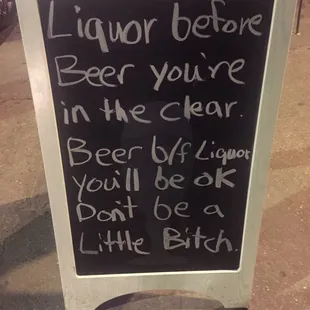 Liquor before
Beer you're
in the clear.
Beer b/f Liquor
you'll be ok
Don't be a
Little Bitch.